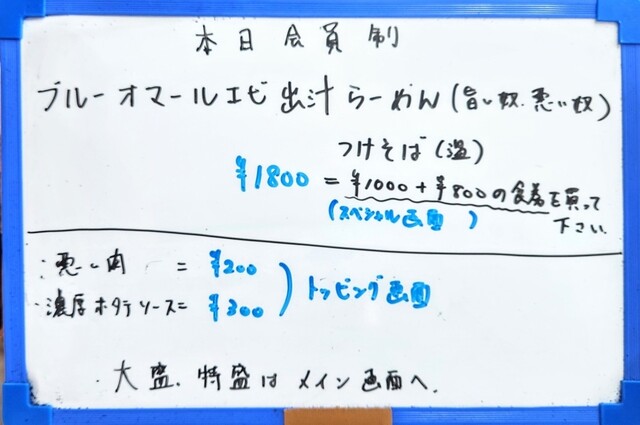 本日会員制
ブルーオマールエビ出汁らーめん(旨い奴.悪い奴)
つけそば(温)
¥1800 = ¥1000+¥800の食券を買って下さい.
(スペシャル画面)
・悪い肉 = ¥200
・濃厚ホタテソース= ¥300
)トッピング画面
・大盛、特盛はメイン画面へ.